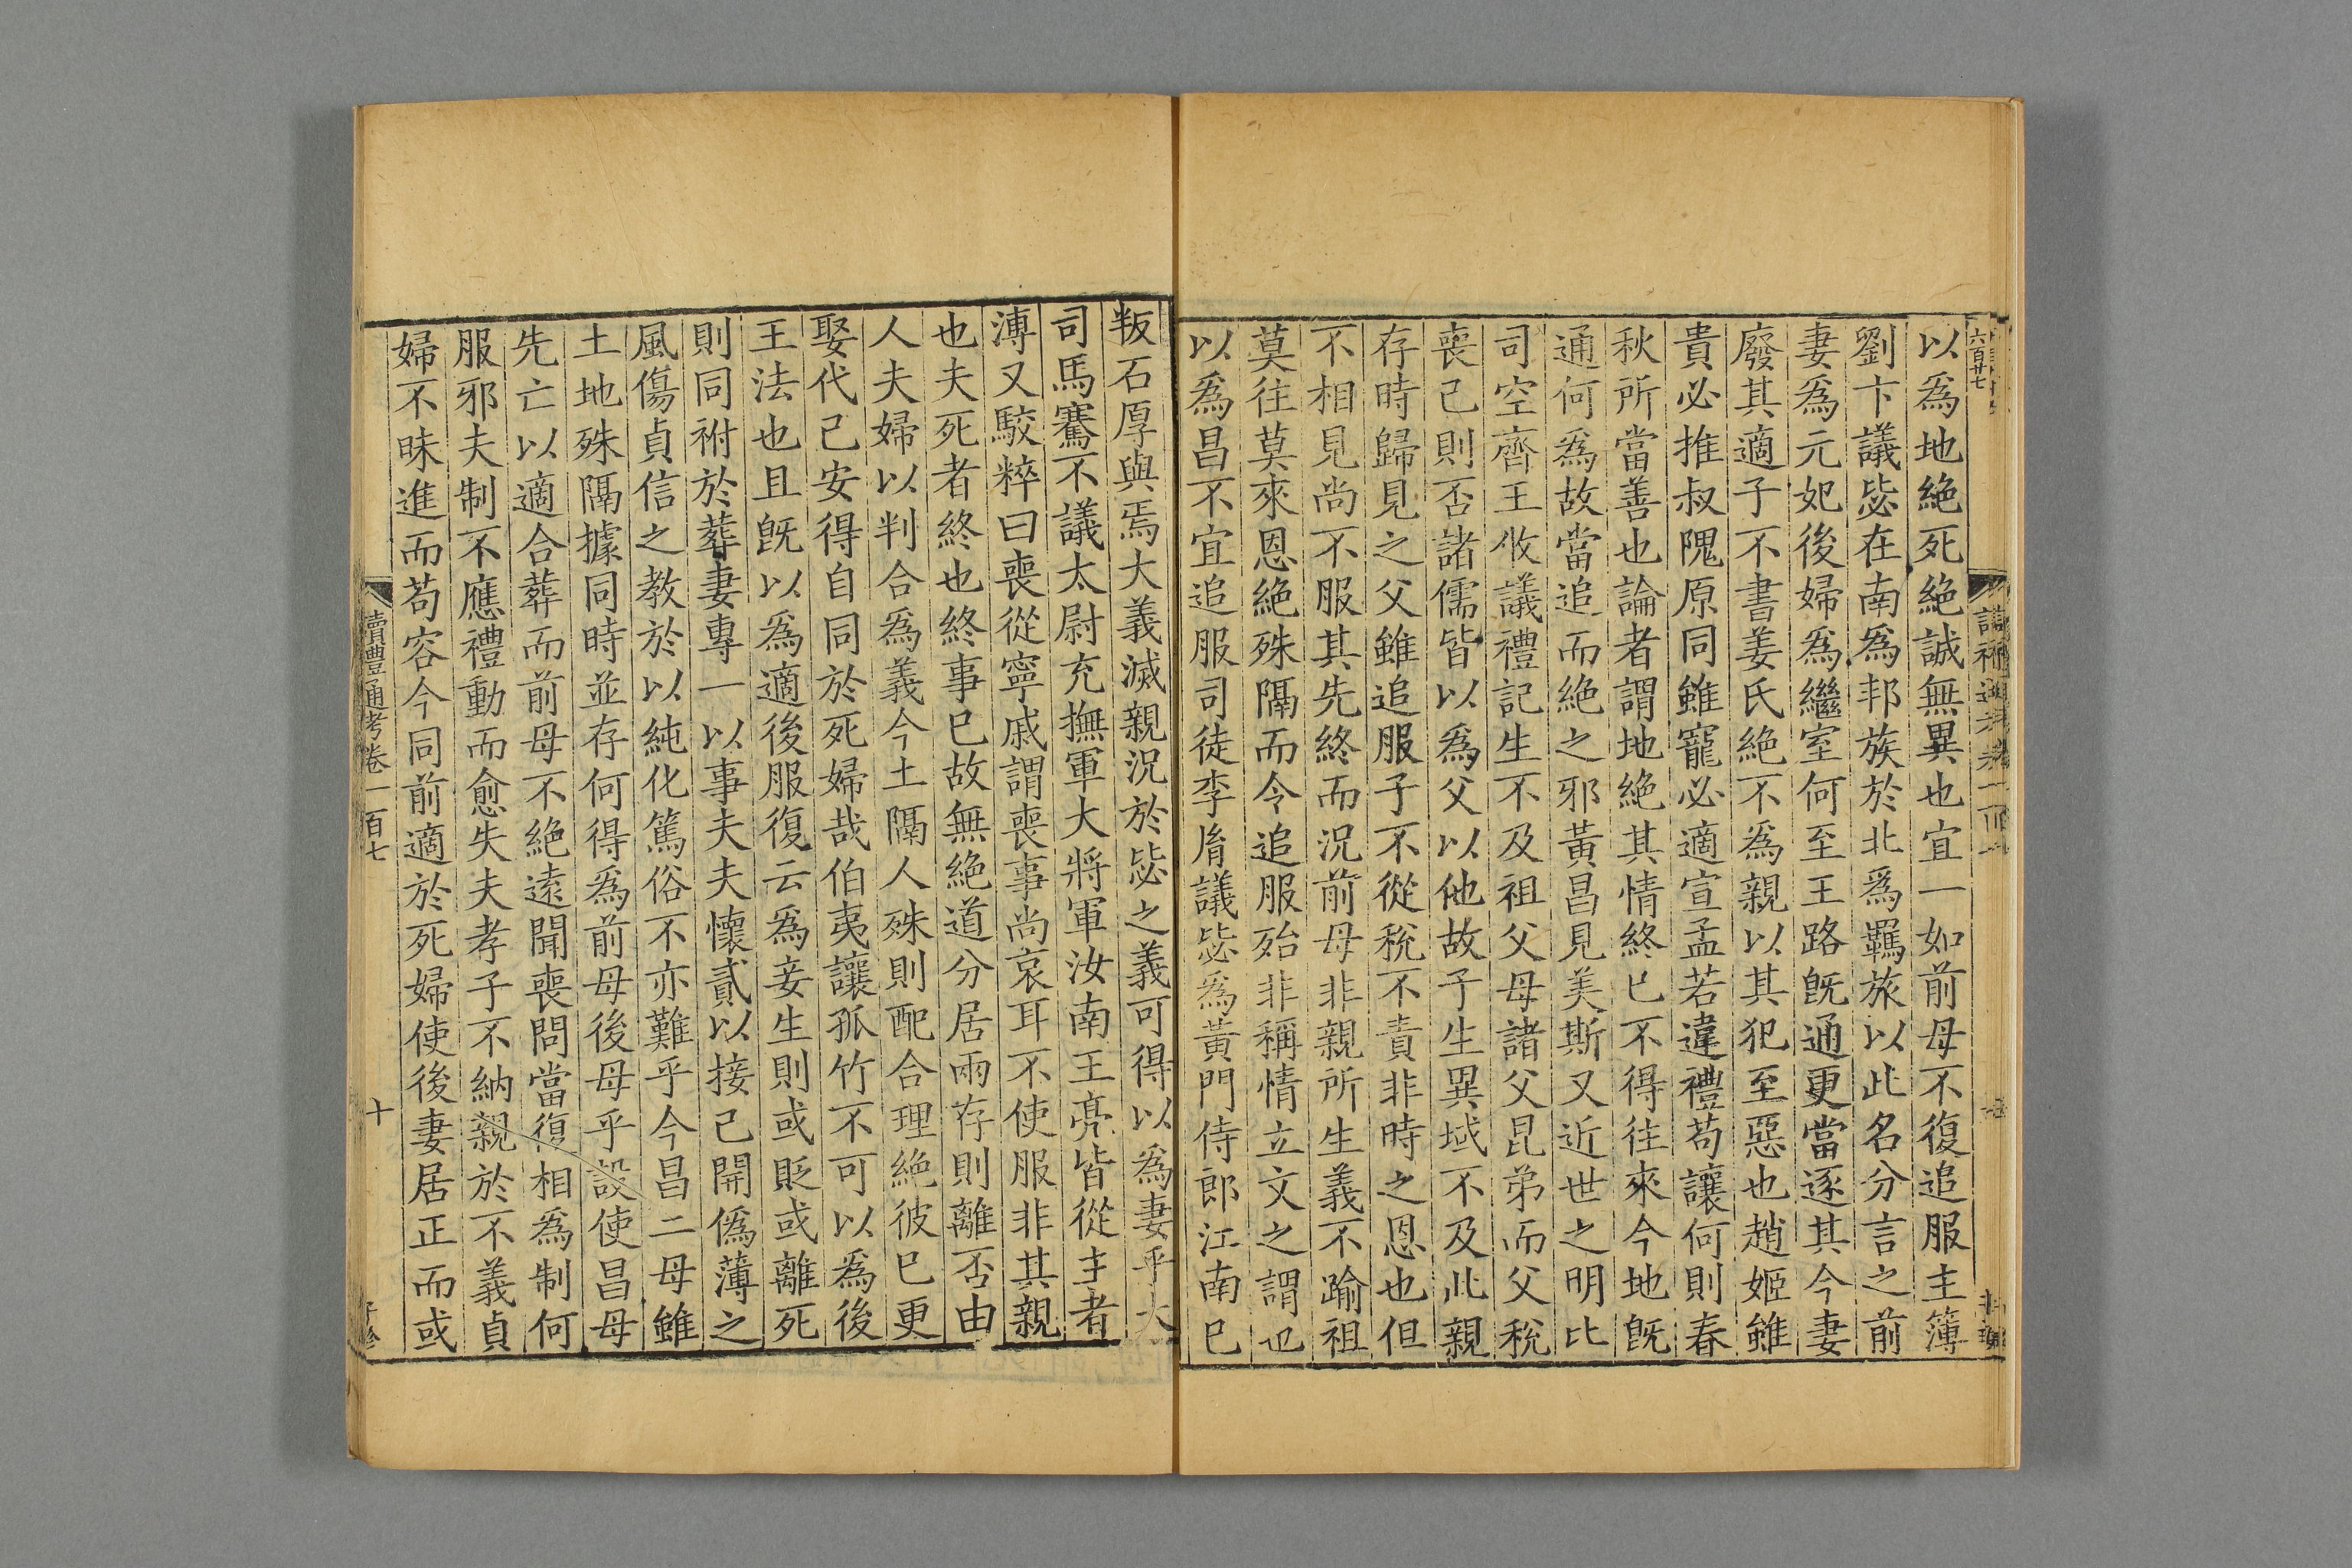 六百廿七
以爲地絶死絶誠無異也宜一如前母不復追服主簿
劉卞議毖在南爲邦族於北爲羈旅以此名分言之前
妻爲元妃後婦爲繼室何至王路旣通更當逐其今妻
廢其適子不書姜氏絶不爲親以其犯至惡也趙姬雖
貴必推叔隗原同雖寵必適宣孟若違禮苟讓何則春
秋所當善也論者謂地絶其情終已不得往來今地旣
通何爲故當追而絶之邪黃昌見美斯又近世之明比
司空齊王攸議禮記生不及祖父母諸父昆弟而父稅
喪己則否諸儒皆以爲父以他故子生異域不及此親
存時歸見之父雖追服子不從稅不責非時之恩也但
不相見尚不服其先終而況前母非親所生義不踰祖
莫往莫來恩絶殊隔而今追服殆非稱情立文之謂也
以爲昌不宜追服司徒李胤議毖爲黃門侍郎江南已
叛石厚與焉大義滅親況於毖之義可得以爲妻乎大
司馬騫不議太尉充撫軍大將軍汝南王亮皆從主者
溥又駮粹曰喪從寧戚謂喪事尚哀耳不使服非其親
也夫死者終也終事已故無絶道分居兩存則離否由
人夫婦以判合爲義今土隔人殊則配合理絶彼已更
娶代己安得自同於死婦哉伯夷讓孤竹不可以爲後
王法也且旣以爲適後服復云爲妾生則或貶或離死
則同祔於葬妻專一以事夫夫懷貳以接己開僞薄之
風傷貞信之教於以純化篤俗不亦難乎今昌二母雖
土地殊隔據同時並存何得爲前母後母乎設使昌母
先亡以適合葬而前母不絶遠聞喪問當復相爲制何
服邪夫制不應禮動而愈失夫孝子不納親於不義貞
婦不昧進而苟容今同前適於死婦使後妻居正而或
讀禮通考卷一百七
十